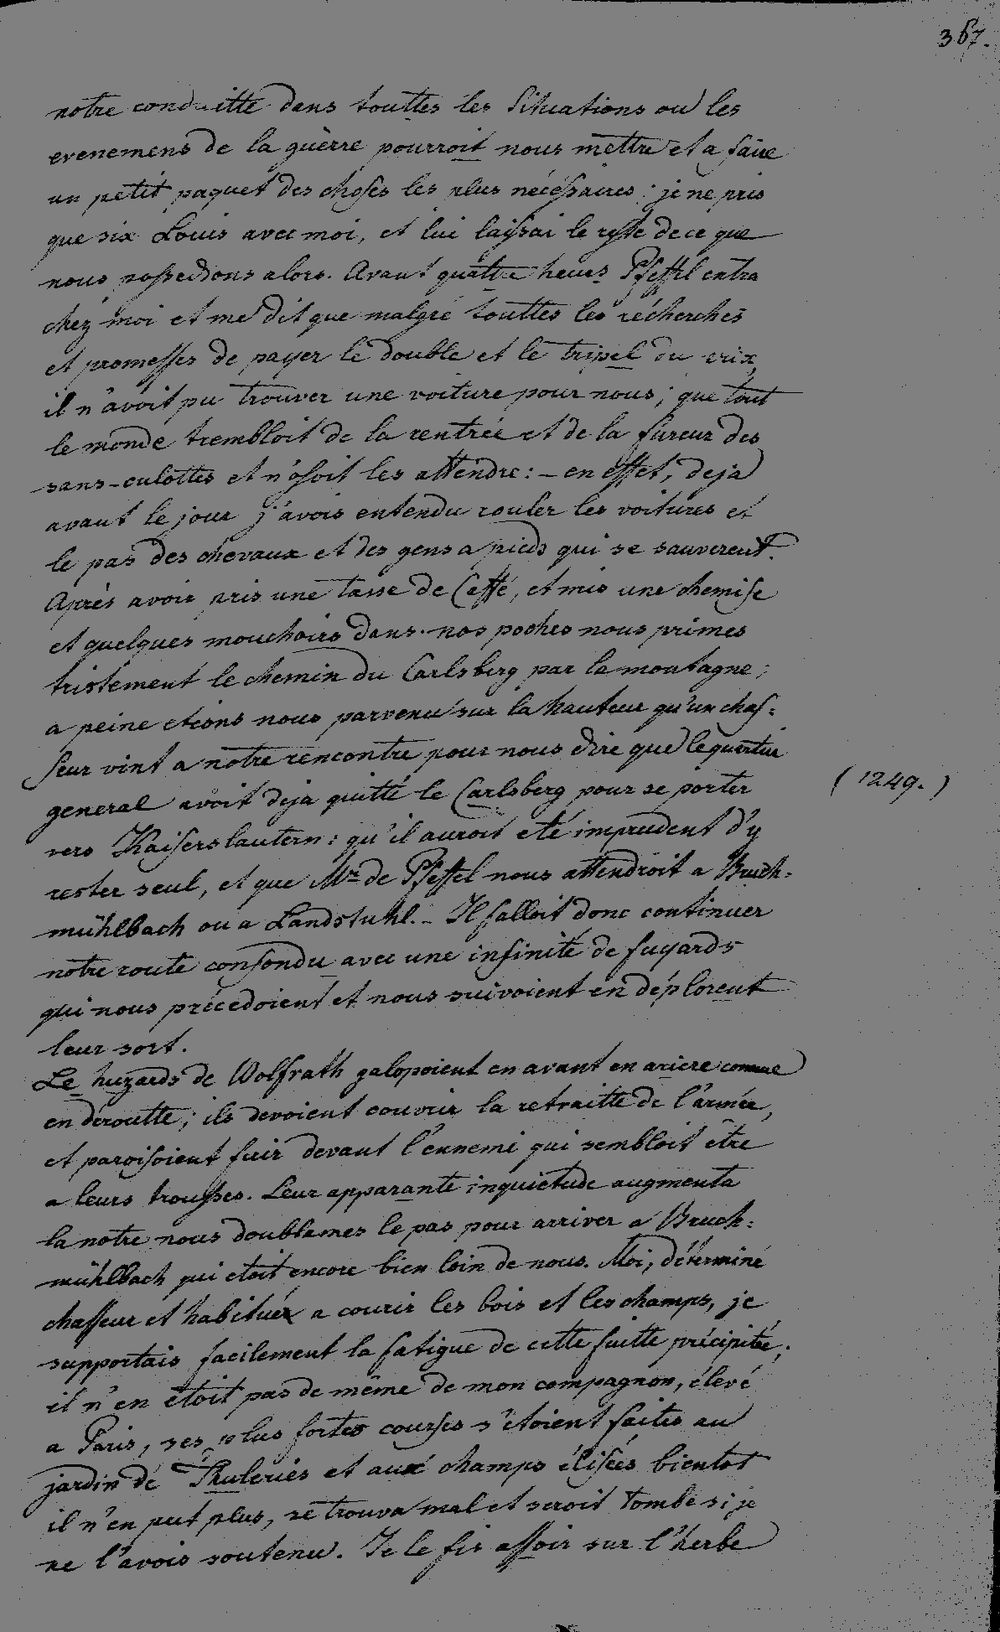 367.
notre conduitte dans touttes les situations ou les
evenemens de la guèrre pourroit nous mettre et a faire
un petit paquet des choses les plus nécéssaires; je ne pris
que six Louis avec moi, et lui laissai le reste de ce que
nous possedions alors. Avant quatre heurs Pfeffel entra
chez moi et me dit que malgré touttes les récherches
et promesses de payer le double et le tripel du prix,
il n'avoit pu trouver une voiture pour nous; que tout
le monde trembloit de la rentrée et de la fureur des
sans-culottes et n'osoit les attendre: - en effet, deja
avant le jour j'avois entendu rouler les voitures et
le pas des chevaux et des gens a pieds qui se sauverent.
Après avoir pris une tasse de Caffé, et mis une chemise
et quelques mouchoirs dans nos poches nous primes
tristement le chemin du Carlsberg par la montagne;
a peine etions nous parvenu sur la hauteur qu'un chas=
seur vint a notre rencontre pour nous dire que le quartier
general avoit deja quitté le Carlsberg pour se porter
(1249.)
vers Kaiserslautern: qu'il auroit eté imprudent d'y
rester seul, et que Mr. de Pfeffel nous attendroit a Bruch=
mühlbach ou a Landstuhl. - Il falloit donc continuer
notre route confondu avec une infinité de fuyards
qui nous précedoient et nous suivoient en déplorent
leur sort.
Le huzards de Wolfrath galopoient en avant en ariere comme
en déroutte; ils devoient couvrir la retraitte de l'armée,
et paroisoient fuir devant l'ennemi qui sembloit être
a leurs trousses. Leur apparante inquietude augmenta
la notre nous doublames le pas pour arriver a Bruch=
mühlbach qui etoit encore bien loin de nous. Moi, déterminé
chasseur et habituér a courir les bois et les champs, je
supportais facilement la fatigue de cette fuitte précipitée;
il n'en étoit pas de même de mon compagnon, élevé
a Paris, ses plus fortes courses s'étoient faites au
jardin de Thuleriés et aux champs élisées bientot
il n'en put plus, se trouva mal et seroit tombé si je
ne l'avois soutenu. Je le fis assoir sur l'herbe